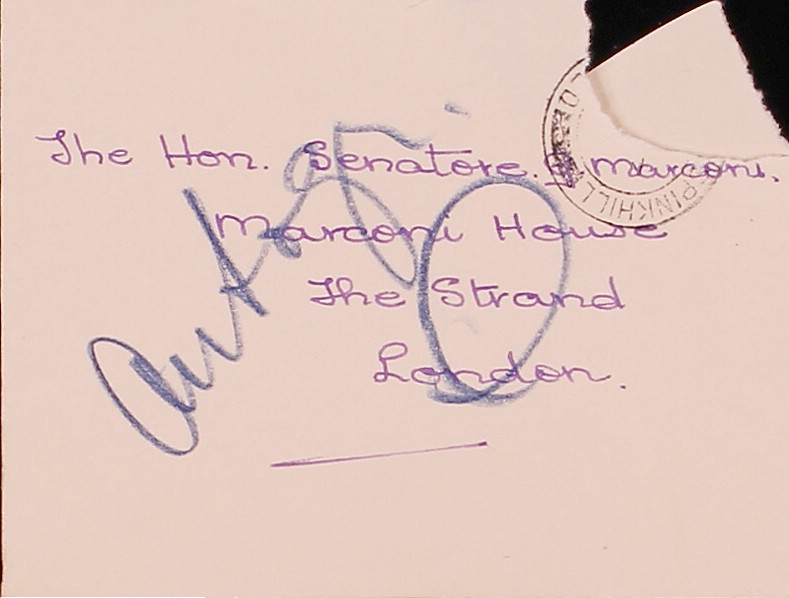 The Hon. Senatore. G. Marconi.
Marconi House
The Strand
London.
PINKHILL